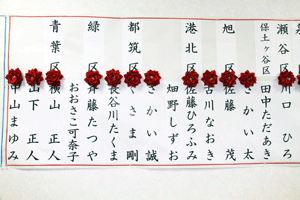 瀬谷区 川口 ひろ
保土ヶ谷区 田中ただあき
さかい 太
旭区 佐藤 茂
古川なおき
港北区 佐藤ひろふみ
畑野しずお
さかい 誠
都筑区 くさま 剛
長谷川たくま
緑区 斉藤たつや
おおさこ可奈子
青葉区 横山 正人
山下 正人
中山まゆみ